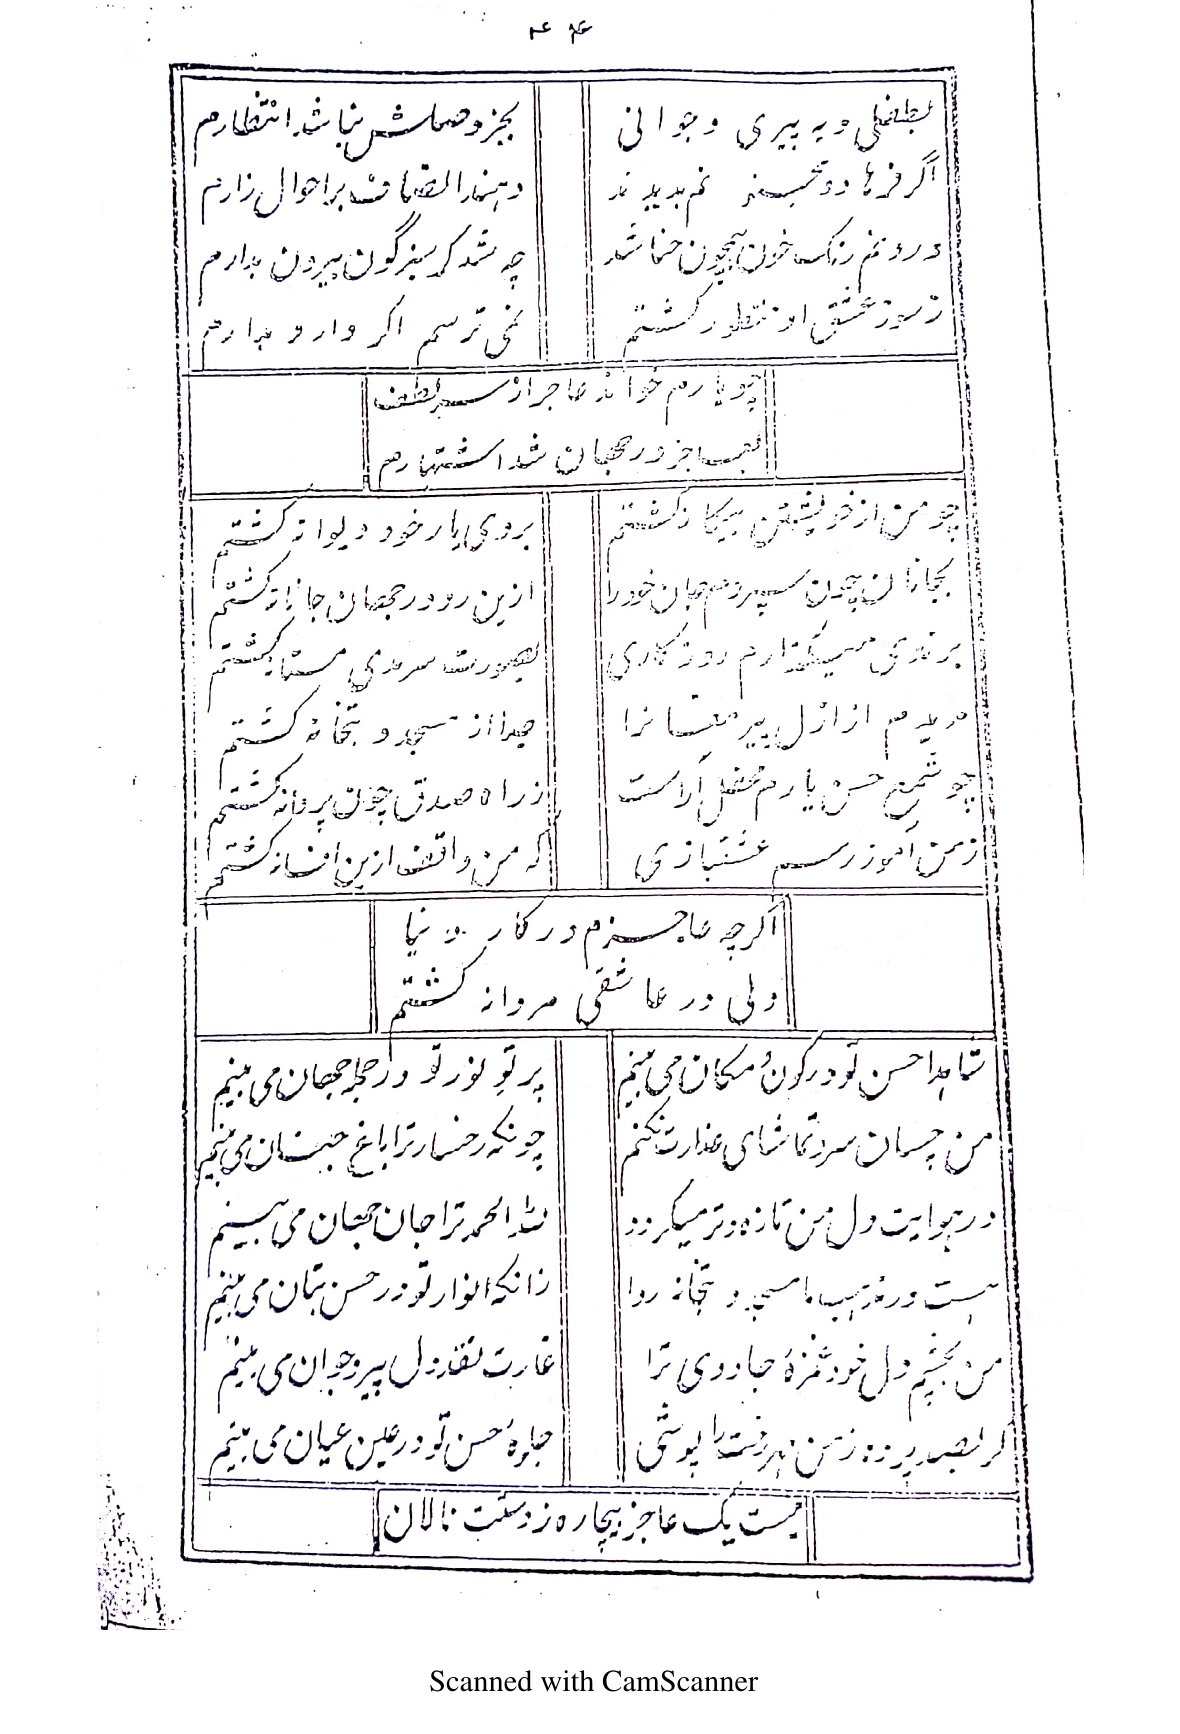 ۴۴
بطفلی و به پیری و جوانی
بجز وصلش نباشد انتظارم
اگر فرهاد و مجنونم بدیدند
دهند انصاف بر احوال زارم
درونم رنگ خون همچون حنا شد
چه شد گر سبزگون بیرون بدارم
ز سوز عشق او منظور گشتم
نمی ترسم اگر دارو ندارم
چو یارم خواند عاجز از سر لطف
بعاجز در جهان شد اشتهارم
چو من از خویشتن بیگانه گشتم
بروی یار خود دیوانه گشتم
بجانان چون سپردم جان خود را
ازین رو در جهان جانانه گشتم
برندی میگذارم روزگاری
بصورت سرمدی مستانه گشتم
مریدم از ازل پیر مغانرا
جدا از مسجد و بتخانه گشتم
چو شمع حسن یارم محفل آراست
ز راه صدق چون پروانه گشتم
ز من آموز رسم عشقبازی
که من واقف ازین افسانه گشتم
اگرچه عاجزم در کار دنیا
ولی در عاشقی مردانه گشتم
شاهدا حسن تو در کون و مکان می بینم
پرتو نور تو در جمله جهان می بینم
من چسان سرد تماشای عذارت نکنم
چونکه رخسار ترا باغ جنان می بینم
در هوایت دل من تازه و تر میگردد
لله الحمد ترا جان جهان می بینم
هست در مذهب ما مسجد و بتخانه روا
زانکه انوار تو در حسن بتان می بینم
من بچشم دل خود غمزهٔ جادوی ترا
غارت نقد دل پیر و جوان می بینم
گر بصد پرده ز من رخت را پوشی
جلوهٔ حسن تو در عین عیان می بینم
نیست یک عاجز بیچاره ز دستت نالان